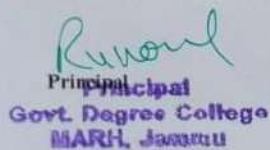 Principal
Principal
Govt. Degree College
MARH, Jammu